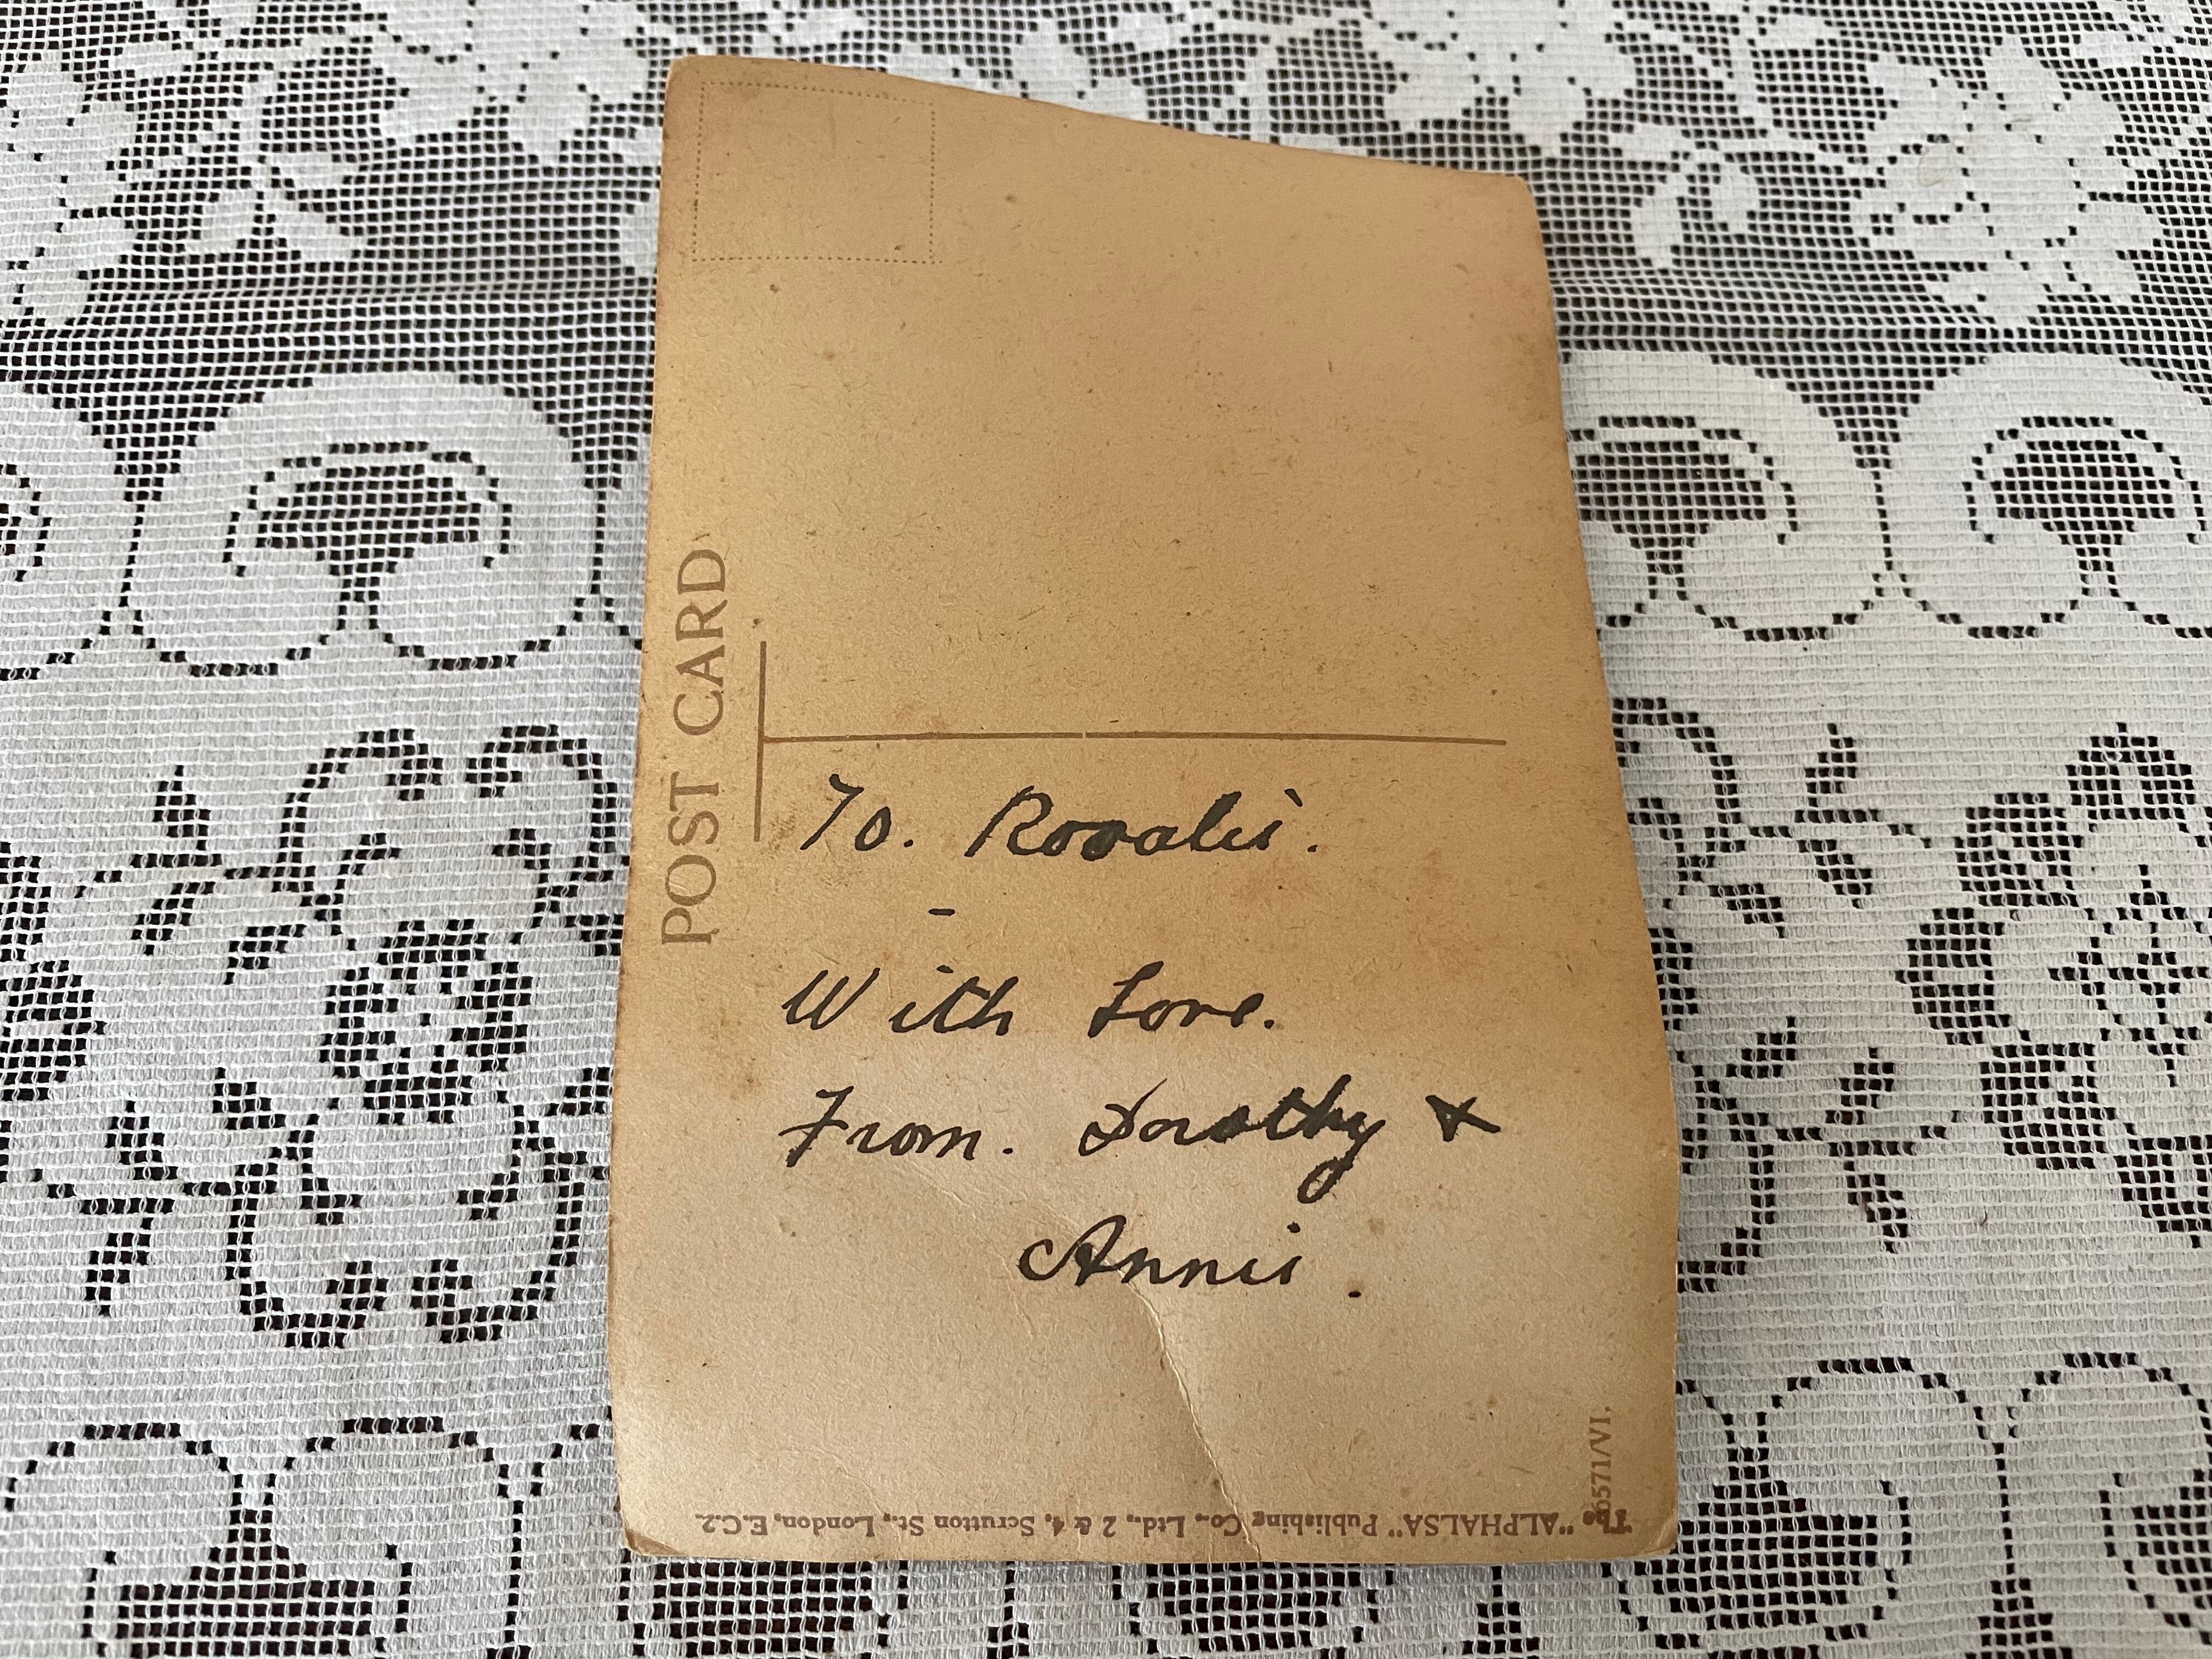 POST CARD
To. Rosalie.
With Love.
From. Dorothy &
Annie.
6571/VI.
The "ALPHALSA" Publishing Co., Ltd., 2 & 4, Scrutton St., London, E.C.2.